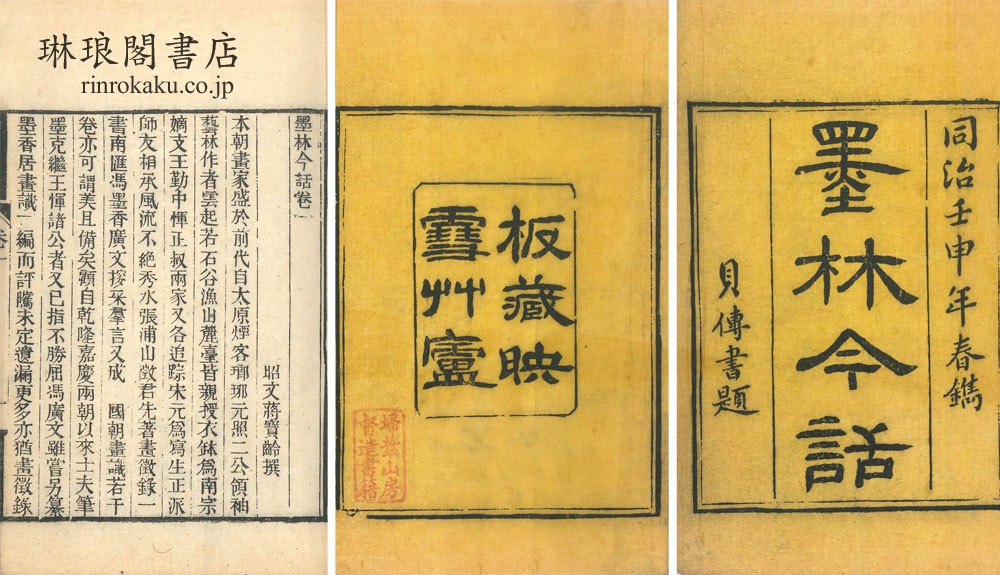 琳琅閣書店
rinrokaku.co.jp
墨林今話卷一
昭文蔣寶齡撰
本朝畫家盛於前代自太原煙客瑯琊元照二公領袖
藝林作者雲起若石谷漁山麓臺皆親授衣鉢爲南宗
嫡支王勤中惲正叔兩家又各追踪宋元爲寫生正派
師友相承風流不絕秀水張浦山徵君先著畫徵錄一
書南匯馮墨香廣文掇采羣言又成　國朝畫識若干
卷亦可謂美且備矣顧自乾隆嘉慶兩朝以來士大夫筆
墨克繼王惲諸公者又已指不勝屈馮廣文雖嘗另纂
墨香居畫識一編而評騭未定遺漏更多亦猶畫徵錄
板藏映
雪艸廬
埽葉山房
督造書籍
同治壬申年春鐫
墨林今話
貝傅書題